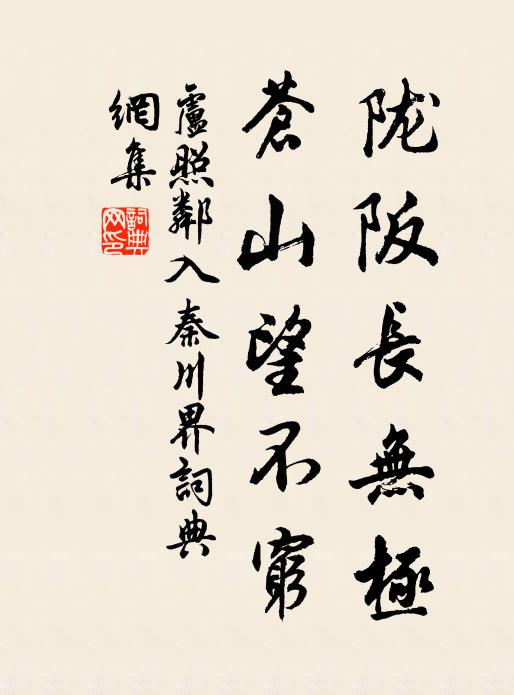 陇阪長無極
蒼山望不窮
盧照鄰入秦川界詞典
網集
詞典网印